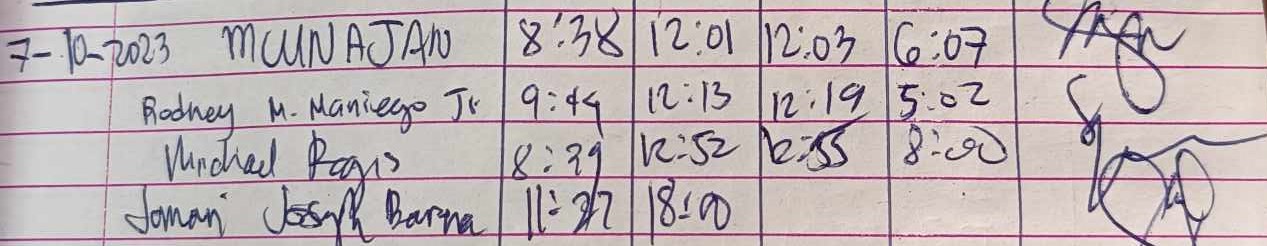 7-10-2023 MUNAJAN 8:38 12:01 12:03 6:07
Rodney M. Maniego Jr 9:49 12:13 12:19 5:02
Michael Regis 8:39 12:52 12:55 8:00
Joman Joseph Barna 11:27 18:00